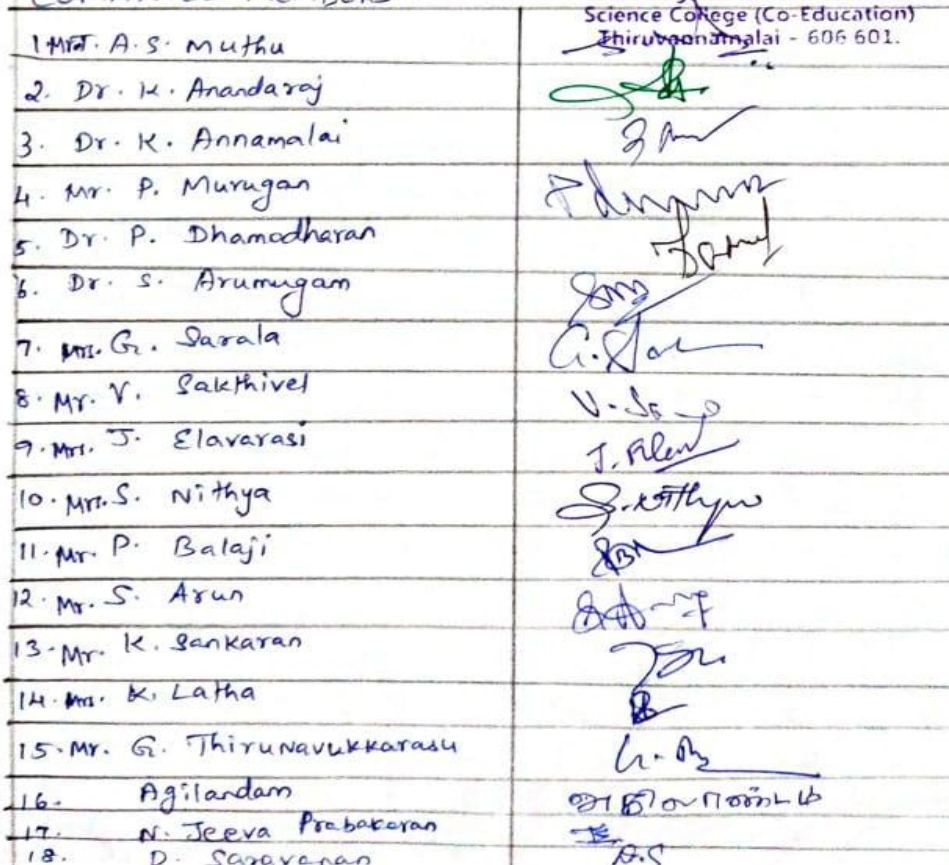 COMMITTEE MEMBERS
Science College (Co-Education)
Thiruvannamalai - 606 601.
1. A.S. Muthu
2. Dr. K. Anandaraj
3. Dr. K. Annamalai
4. Mr. P. Murugan
5. Dr. P. Dhamodharan
6. Dr. S. Arumugam
7. Mrs. G. Sarala
G.
8. Mr. V. Sakthivel
V.
9. Mrs. J. Elavarasi
J.
10. Mrs. S. Nithya
S. Nithya
11. Mr. P. Balaji
12. Mr. S. Arun
13. Mr. K. Sankaran
14. Mrs. K. Latha
15. Mr. G. Thirunavukkarasu
16. Agilandam
அகிலாண்டம்
17. N. Jeeva Prabakaran
18. D. Saravanan
D.S